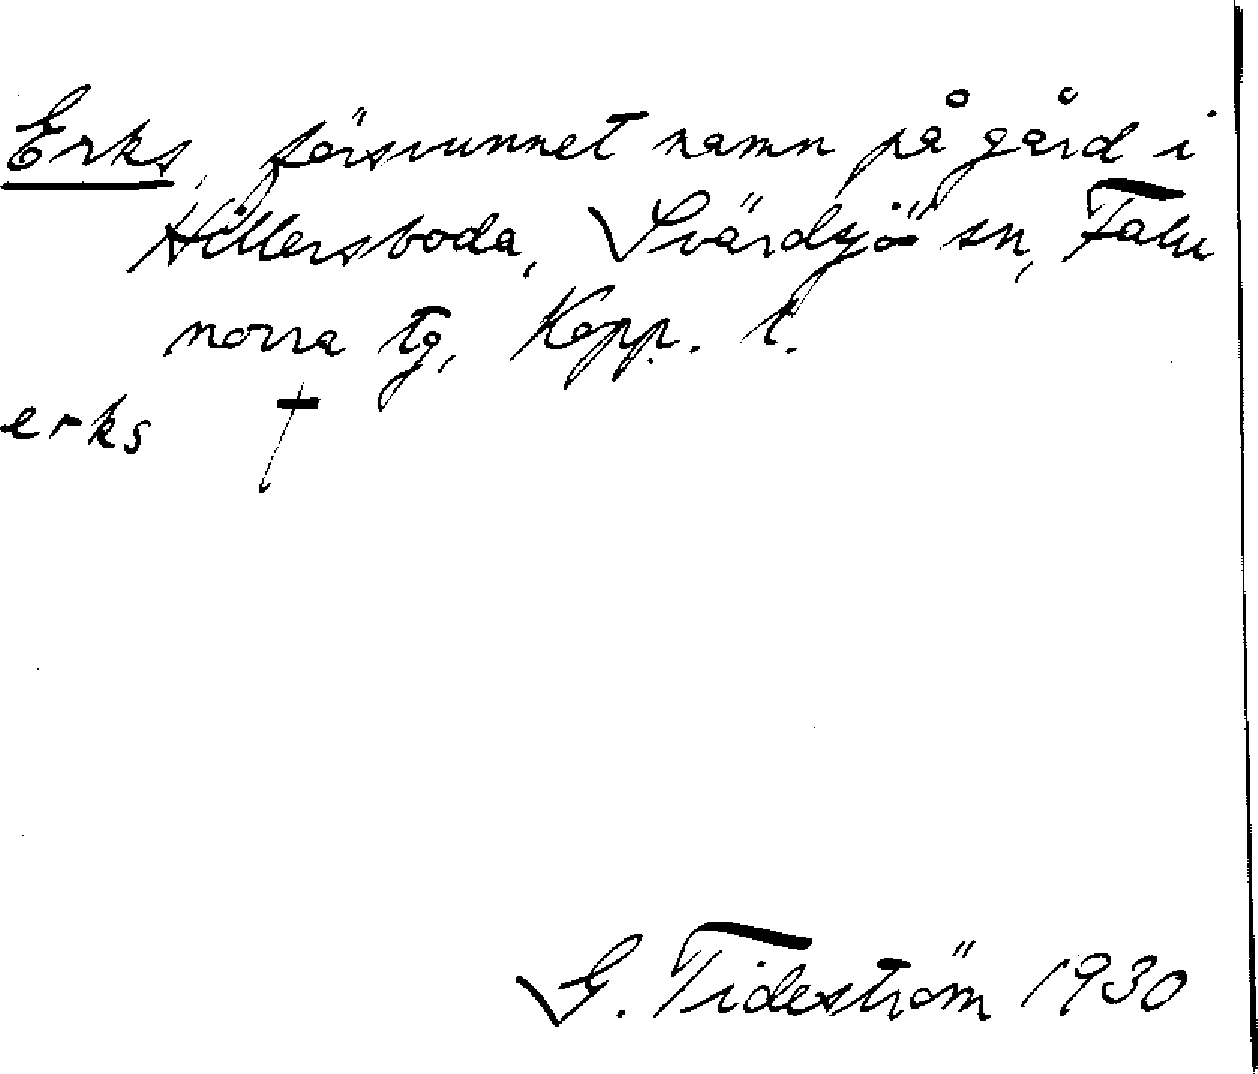 Erks, försvunnet namn på gård i
Hillersboda, Svärdsjö sn, Falu
norra tg, Kopp. l.
erks †
G. Tideström 1930